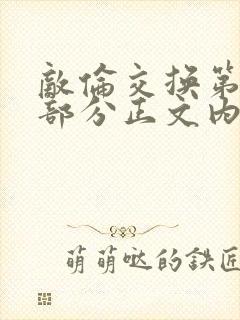 敵倫交換第
部分正文內
萌萌噠的鉄匠